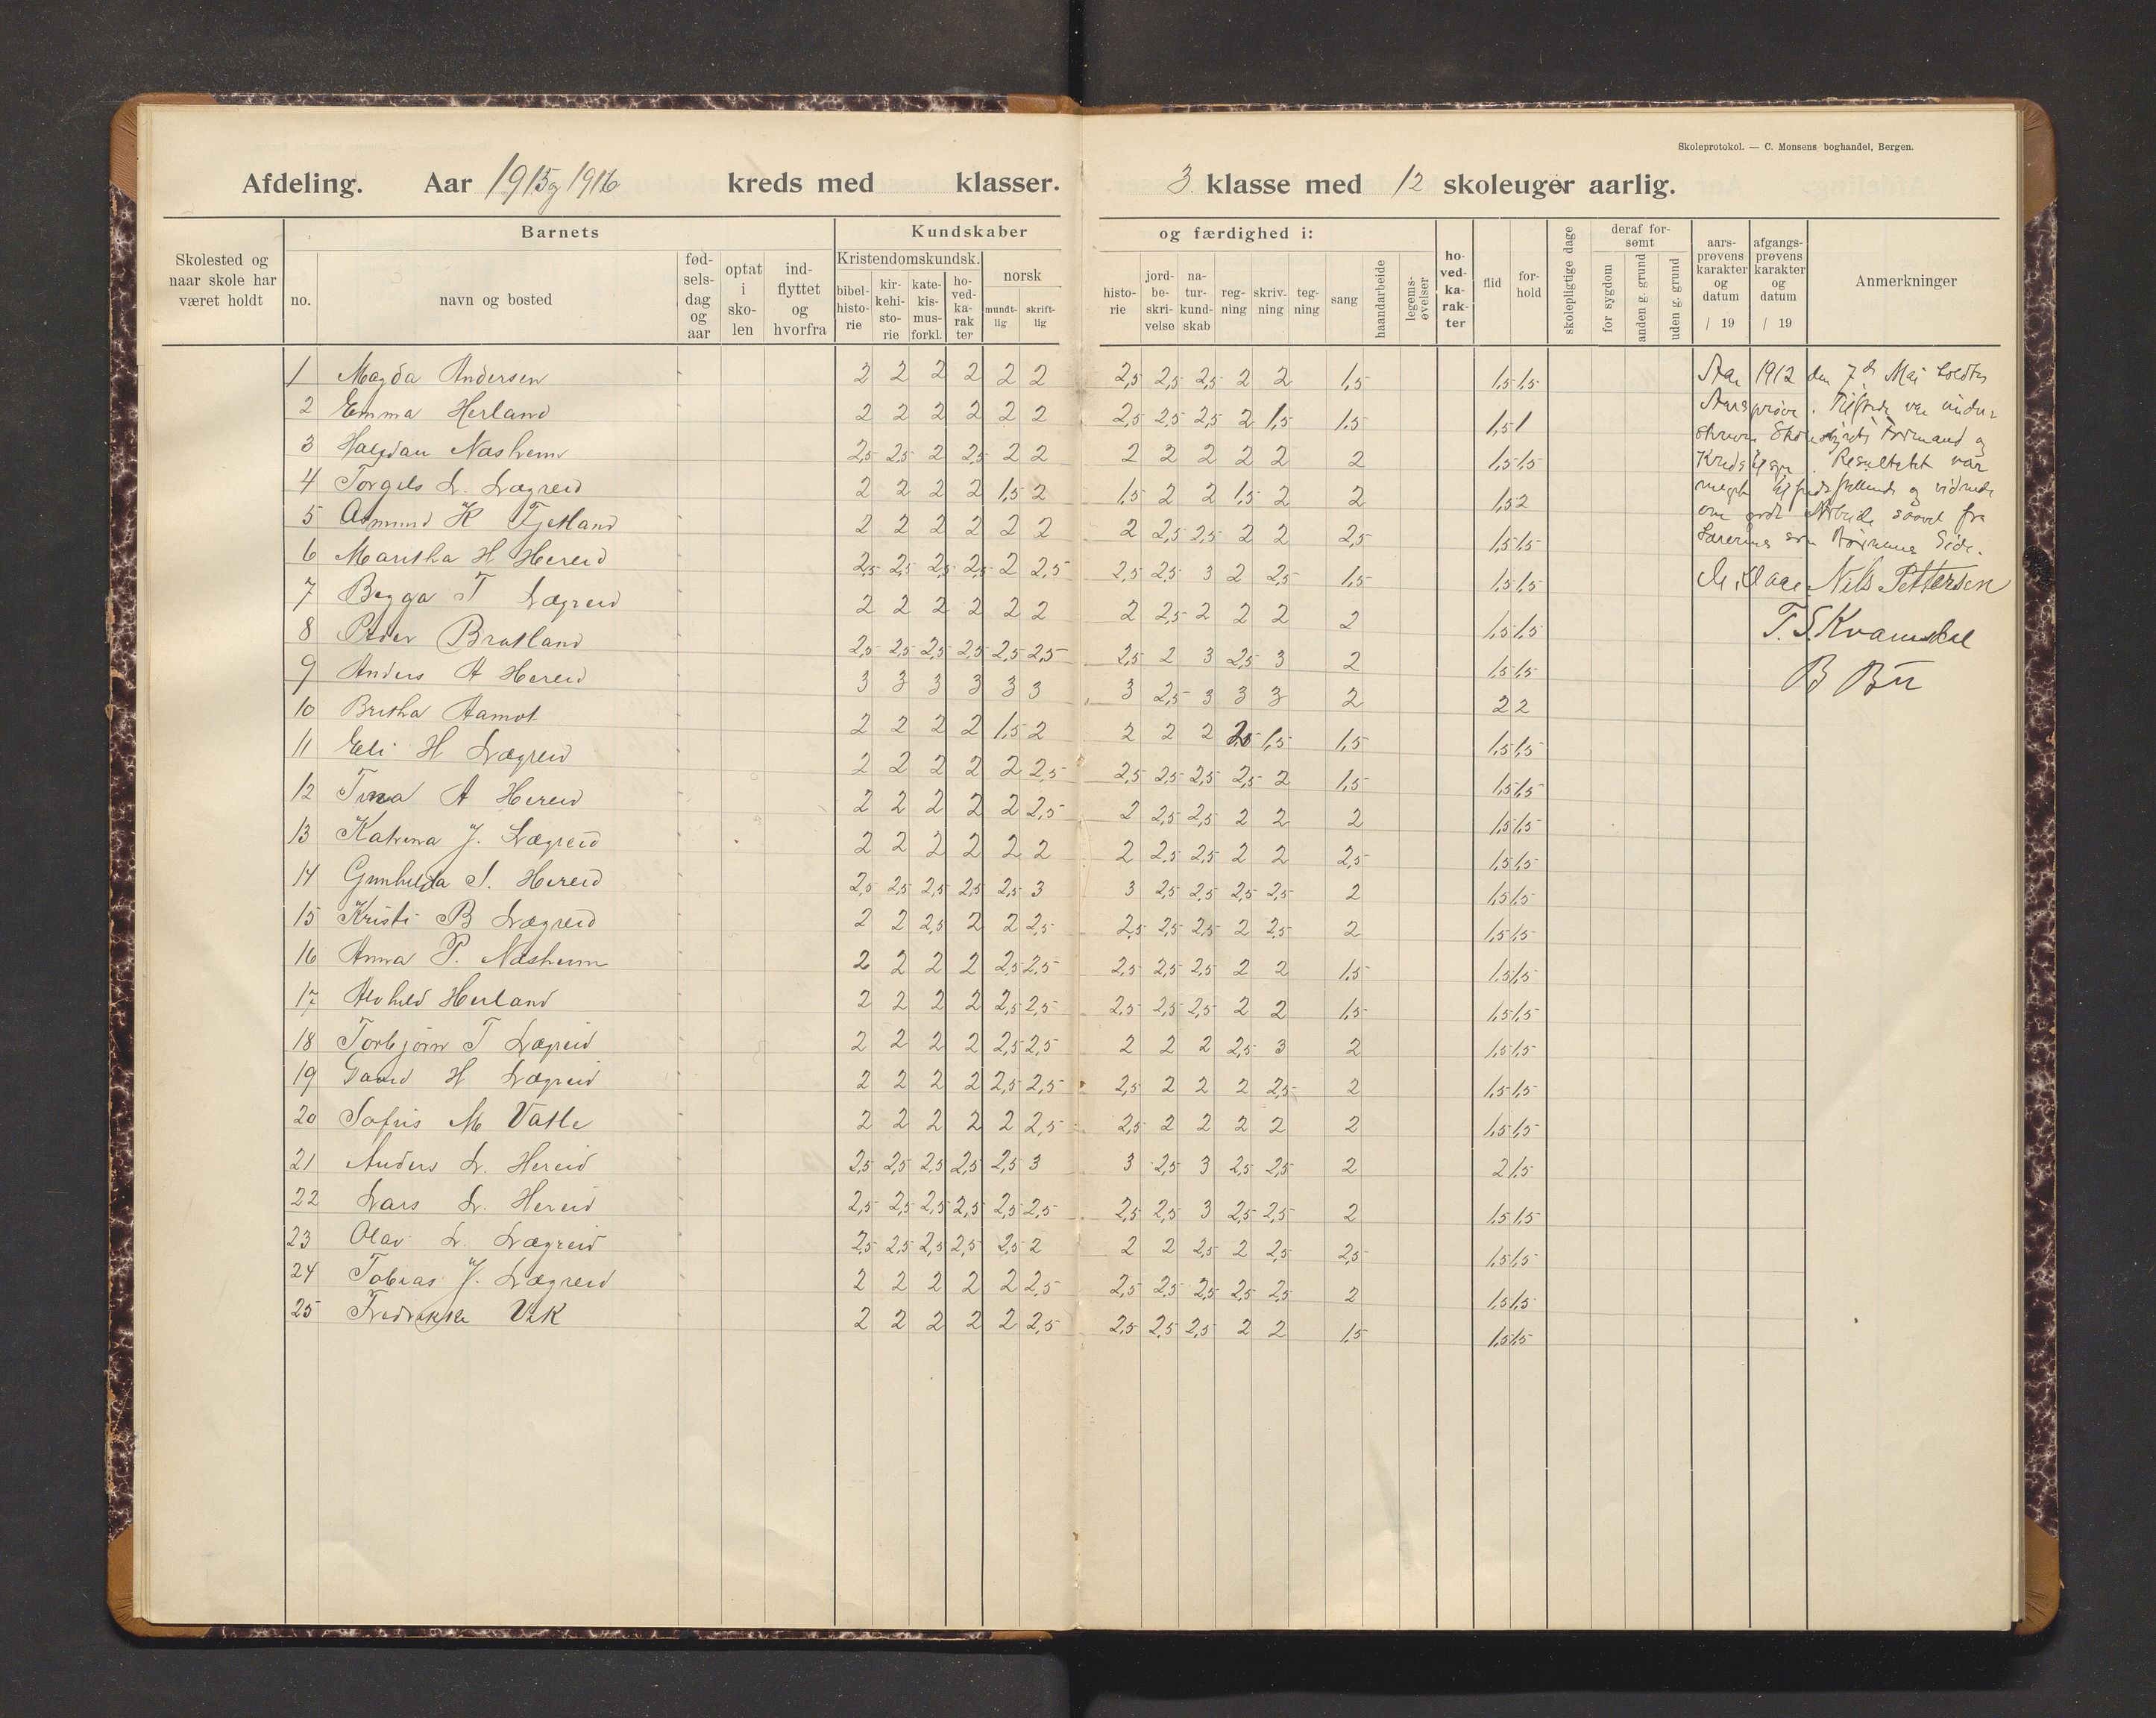 Skoleprotokol. — C. Monsens boghandel, Bergen.
Afdeling. Aar 1915 og 1916 kreds med klasser. 3 klasse med 12 skoleuger aarlig.
Skolested og naar skole har været holdt
Barnets
no.
navn og bosted
fødselsdag og aar
optat i skolen
indflyttet og hvorfra
Kundskaber
Kristendomskundsk.
bibelhistorie
kirkehistorie
katekismusforkl.
hovedkarakter
norsk
mundtlig
skriftlig
og færdighed i:
historie
jordbeskrivelse
naturkundskab
regning
skrivning
tegning
sang
haandarbeide
legemsøvelser
hovedkarakter
flid
forhold
skolepligtige dage
deraf forsømt
for sygdom
anden g. grund
uden g. grund
aarsprøvens karakter og datum / 19
afgangsprøvens karakter og datum / 19
Anmerkninger
1 Magda Andersen 2 2 2 2 2 2 2,5 2,5 2,5 2 2 1,5 1,5 1,5
2 Emma Herland 2 2 2 2 2 2 2,5 2,5 2,5 2 1,5 1,5 1,5 1
3 Halfdan Næsheim 2,5 2,5 2 2,5 2 2 2 2 2 2 2 2 1,5 1,5
4 Torgils L. Lægreid 2 2 2 2 1,5 2 1,5 2 2 1,5 2 2 1,5 2
5 Asmund K Tjetland 2 2 2 2 2 2 2 2,5 2,5 2 2 2,5 1,5 1,5
6 Maritha H Hereid 2,5 2,5 2,5 2,5 2 2,5 2,5 2,5 3 2 2,5 1,5 1,5 1,5
7 Begga T Lægreid 2 2 2 2 2 2 2 2,5 2 2 2 2 1,5 1,5
8 Peder Bratland 2,5 2,5 2,5 2,5 2,5 2,5 2,5 2 3 2,5 3 2 1,5 1,5
9 Anders A Hereid 3 3 3 3 3 3 3 2,5 3 3 3 2 2 2
10 Britha Aamot 2 2 2 2 1,5 2 2 2 2 2,5 1,5 1,5 1,5 1,5
11 Eli H Lægreid 2 2 2 2 2 2,5 2,5 2,5 2,5 2,5 2 1,5 1,5 1,5
12 Tina A Hereid 2 2 2 2 2 2,5 2 2,5 2,5 2 2 2 1,5 1,5
13 Katrina J. Lægreid 2 2 2 2 2 2 2 2,5 2,5 2 2 2,5 1,5 1,5
14 Gunhilda S. Hereid 2,5 2,5 2,5 2,5 2,5 3 3 2,5 2,5 2,5 2,5 2 1,5 1,5
15 Kristi B Lægreid 2 2 2,5 2 2 2,5 2,5 2,5 2,5 2 2,5 2 1,5 1,5
16 Anna P. Næsheim 2 2 2 2 2,5 2,5 2,5 2,5 2,5 2 2 1,5 1,5 1,5
17 Alvhild Herland 2 2 2 2 2,5 2,5 2,5 2,5 2,5 2 2 1,5 1,5 1,5
18 Torbjørn T Lægreid 2 2 2 2 2,5 2,5 2 2 2 2,5 3 2 1,5 1,5
19 H Lægreid 2 2 2 2 2,5 2,5 2,5 2 2 2 2,5 2 1,5 1,5
20 M Vatle 2 2 2 2 2 2,5 2,5 2 2 2 2 2 1,5 1,5
21 Anders L. Hereid 2,5 2,5 2,5 2,5 2,5 3 3 2,5 3 2,5 2,5 2 2 1,5
22 Lars L. Hereid 2,5 2,5 2,5 2,5 2,5 2,5 2,5 2,5 3 2,5 2,5 2 1,5 1,5
23 Olav L. Lægreid 2,5 2,5 2,5 2,5 2,5 2 2 2 2,5 2 2,5 2,5 1,5 1,5
24 Tobias J. Lægreid 2 2 2 2 2 2,5 2,5 2,5 2,5 2,5 2,5 2 1,5 1,5
25 Fredrikke Vik 2 2 2 2 2 2,5 2,5 2,5 2,5 2 2 1,5 1,5 1,5
Aar 1912 den 7de Mai holdtes
Aarsprøve. Tilstede var under-
skrevne Skolestyrets Formand og
Kredstilsyn. Resultatet var
meget tilfredsstillende og vidnede
om godt Arbeide saavel fra
Lærerens som Børnenes Side.
Nils Pettersen
T. S. Kvamsdal
B Bu